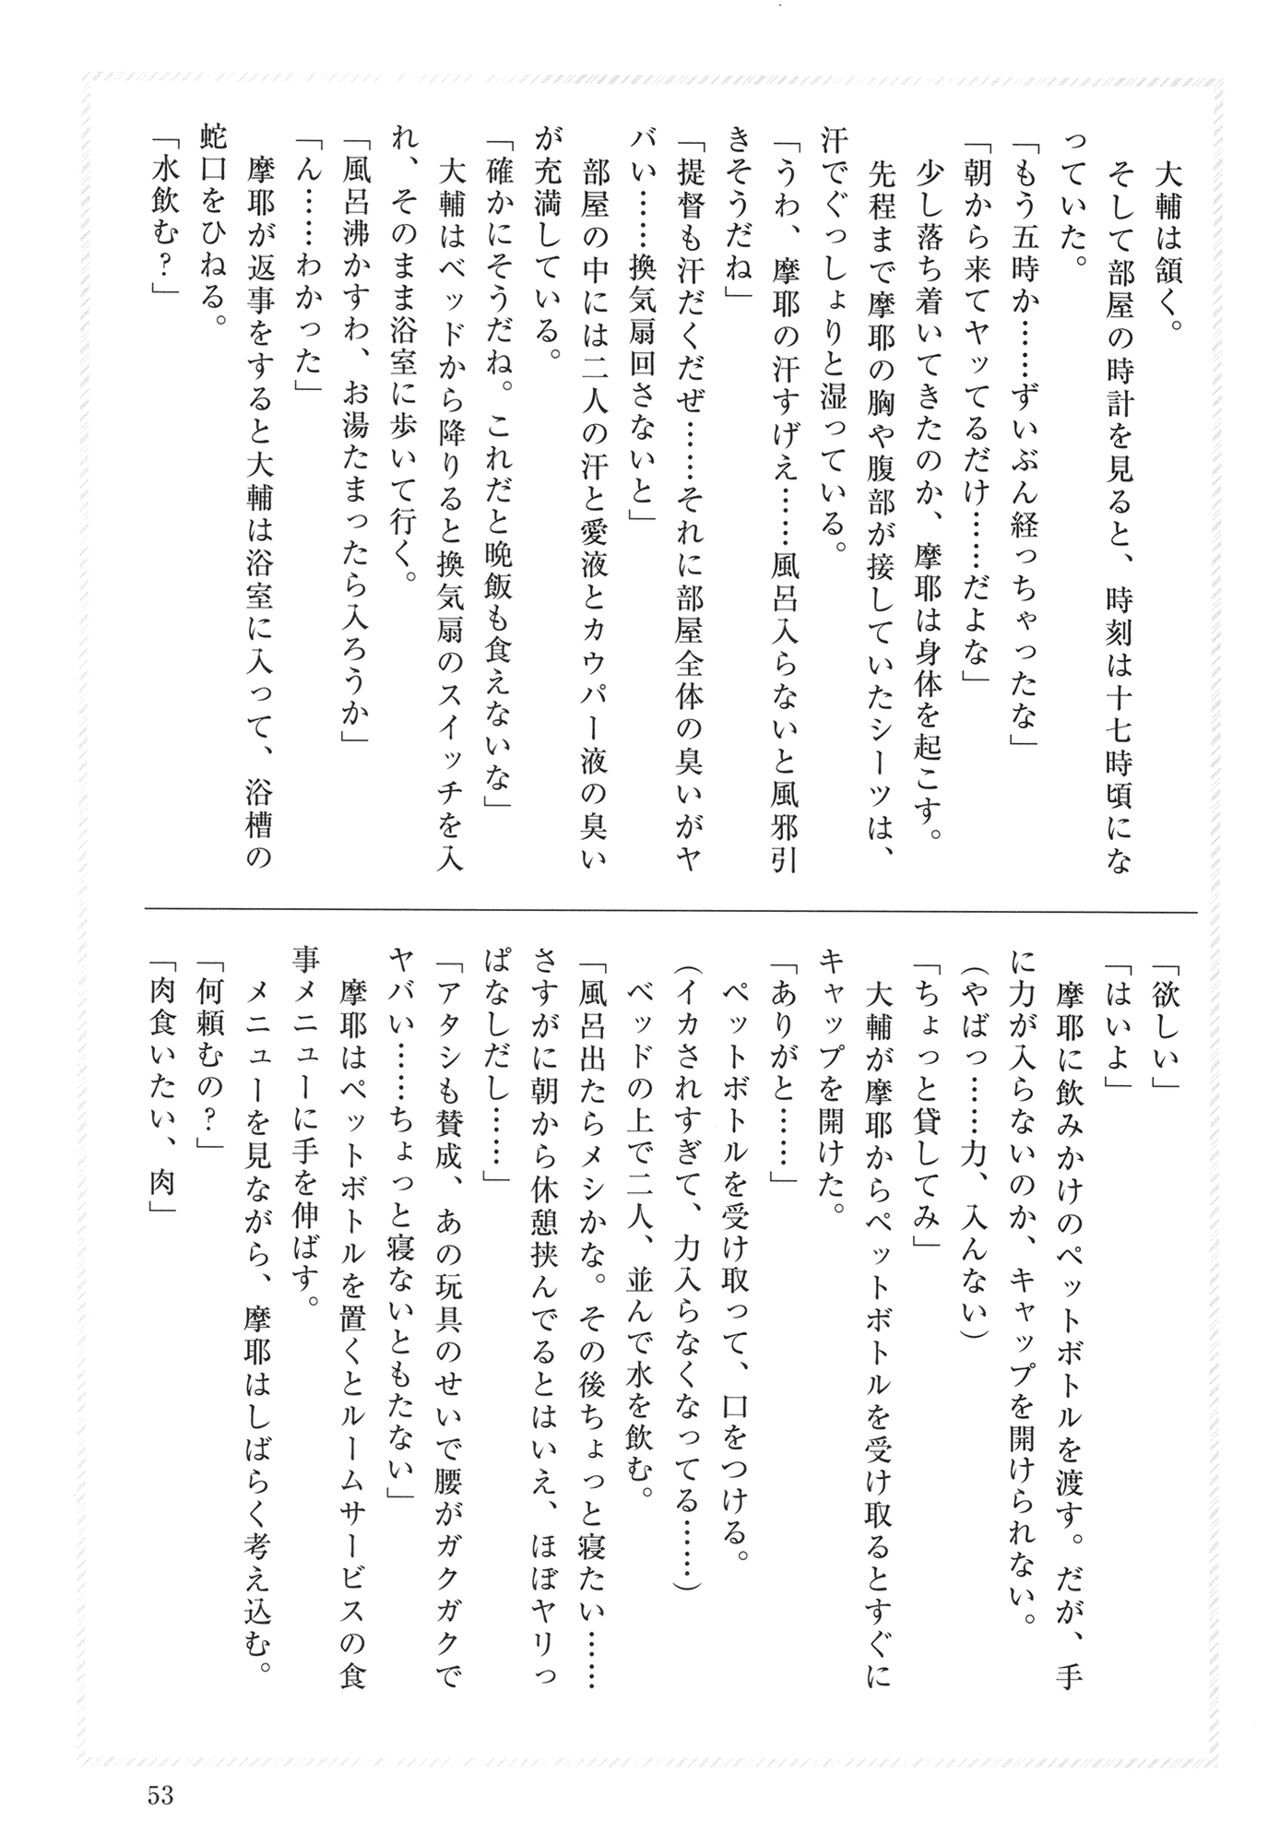 大輔は頷く。
　そして部屋の時計を見ると、時刻は十七時頃にな
っていた。
「もう五時か……ずいぶん経っちゃったな」
「朝から来てヤッてるだけ……だよな」
　少し落ち着いてきたのか、摩耶は身体を起こす。
　先程まで摩耶の胸や腹部が接していたシーツは、
汗でぐっしょりと湿っている。
「うわ、摩耶の汗すげえ……風呂入らないと風邪引
きそうだね」
「提督も汗だくだぜ……それに部屋全体の臭いがヤ
バい……換気扇回さないと」
　部屋の中には二人の汗と愛液とカウパー液の臭い
が充満している。
「確かにそうだね。これだと晩飯も食えないな」
　大輔はベッドから降りると換気扇のスイッチを入
れ、そのまま浴室に歩いて行く。
「風呂沸かすわ、お湯たまったら入ろうか」
「ん……わかった」
　摩耶が返事をすると大輔は浴室に入って、浴槽の
蛇口をひねる。
「水飲む？」
「欲しい」
「はいよ」
　摩耶に飲みかけのペットボトルを渡す。だが、手
に力が入らないのか、キャップを開けられない。
（やばっ……力、入んない）
「ちょっと貸してみ」
　大輔が摩耶からペットボトルを受け取るとすぐに
キャップを開けた。
「ありがと……」
　ペットボトルを受け取って、口をつける。
（イカされすぎて、力入らなくなってる……）
　ベッドの上で二人、並んで水を飲む。
「風呂出たらメシかな。その後ちょっと寝たい……
さすがに朝から休憩挟んでるとはいえ、ほぼヤリっ
ぱなしだし……」
「アタシも賛成、あの玩具のせいで腰がガクガクで
ヤバい……ちょっと寝ないともたない」
　摩耶はペットボトルを置くとルームサービスの食
事メニューに手を伸ばす。
　メニューを見ながら、摩耶はしばらく考え込む。
「何頼むの？」
「肉食いたい、肉」
53